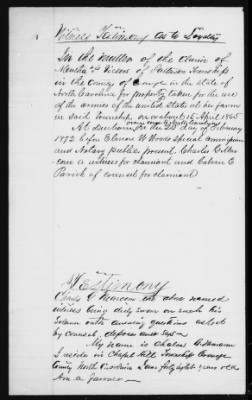 Witness Testimony as to Loyalty
In the matter of the claim of
of Patterson Township
in the County of Orange in the state of
North Carolina for property taken for the use
of the armies of the united states at his farm
in said Township on or about 15 April 1865
At Durham on the day of February
1872 before W Woods Special Commissioner
and Notary public, present, Charles G
a witness for claimant and Calvin E
Parish of counsel for claimant
Testimony
G the above named
witness being duly sworn on such his
solemn oath answering questions asked
by counsel, deposes and says
My name is Charles G
I reside in Chapel Hill Township Orange
County North Carolina I am forty eight years old
Am a farmer